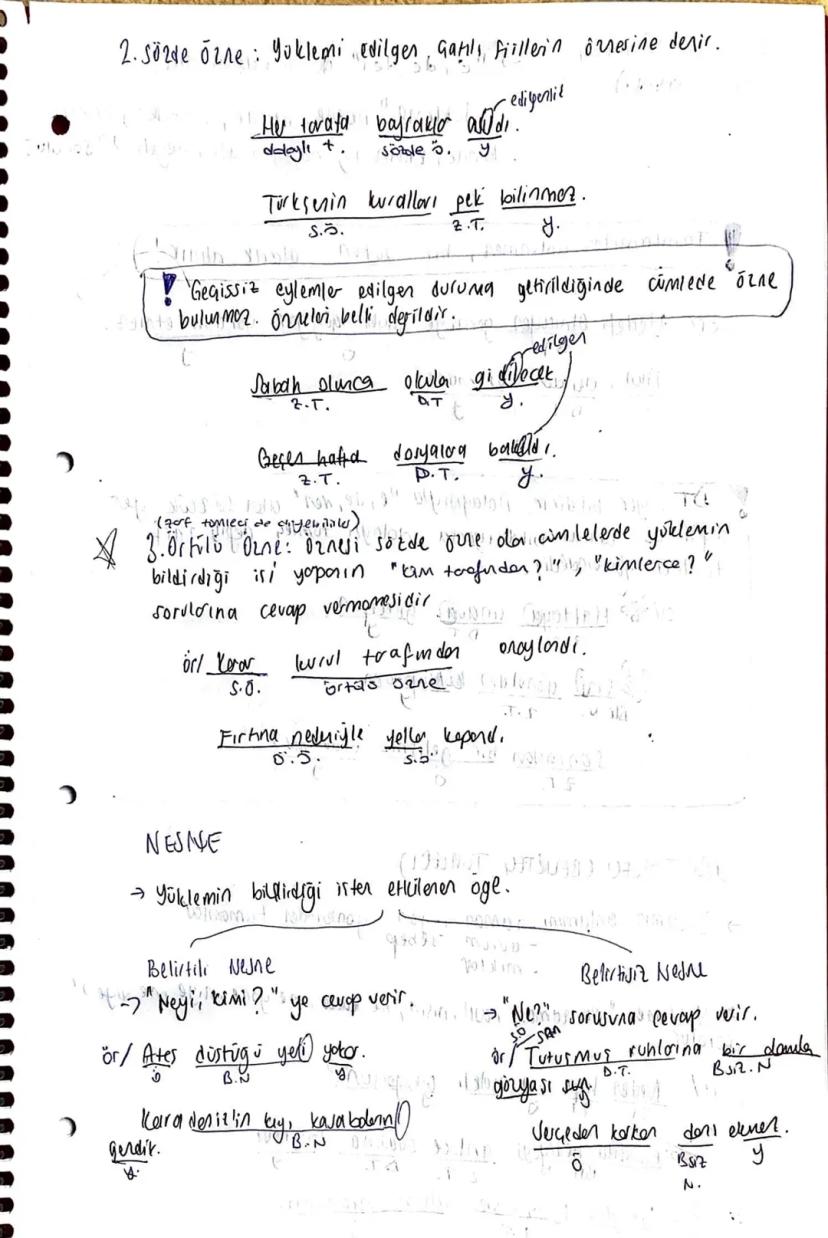 2. Sözde Özne : Yüklemi edilgen çatılı fiillerin öznesine denir.
edilgenlik
Her tarafa bayraklar asıldı.
dolaylı t. sözde ö. y
Türkçenin kuralları pek bilinmez.
S.Ö. Z.T. y.
! Geçissiz eylemler edilgen duruma getirildiğinde cümlede özne
bulunmez. Özneleri belli değildir.
edilgen
Sabah olunca okula gidilecek
Z.T. D.T y.
Geçen hafta dosyalara bakıldı.
Z.T. D.T. y.
(zarf tümleci de diyebilirler)
3. Örtülü Özne: Öznesi sözde özne olan cümlelerde yüklemin
bildirdiği işi yapanın "kim tarafından?", "kimlerce?"
sorularına cevap vermemesidir
ör/ Karar kurul tarafından onaylandı.
S.Ö. örtülü özne
Fırtına nedeniyle yollar kapandı.
Ö.Ö. S.Ö.
NESNE
→ Yüklemin bildirdiği işten etkilenen öge.
Belirtili Nesne
→ "Neyi, kimi?" ye cevap verir.
ör/ Ateş düştüğü yeri yakar.
ö B.N y
Karadeniz'in kıyı kasabalarını
B.N
gezdir.
y.
Belirtisiz Nesne
→ "Ne?" sorusuna cevap verir.
ör/ Tutuşmuş ruhlarına bir damla
D.T. Bsız. N
gözyaşı sun
y
Serçeden korkan darı ekmez.
Ö Bsız y
N.